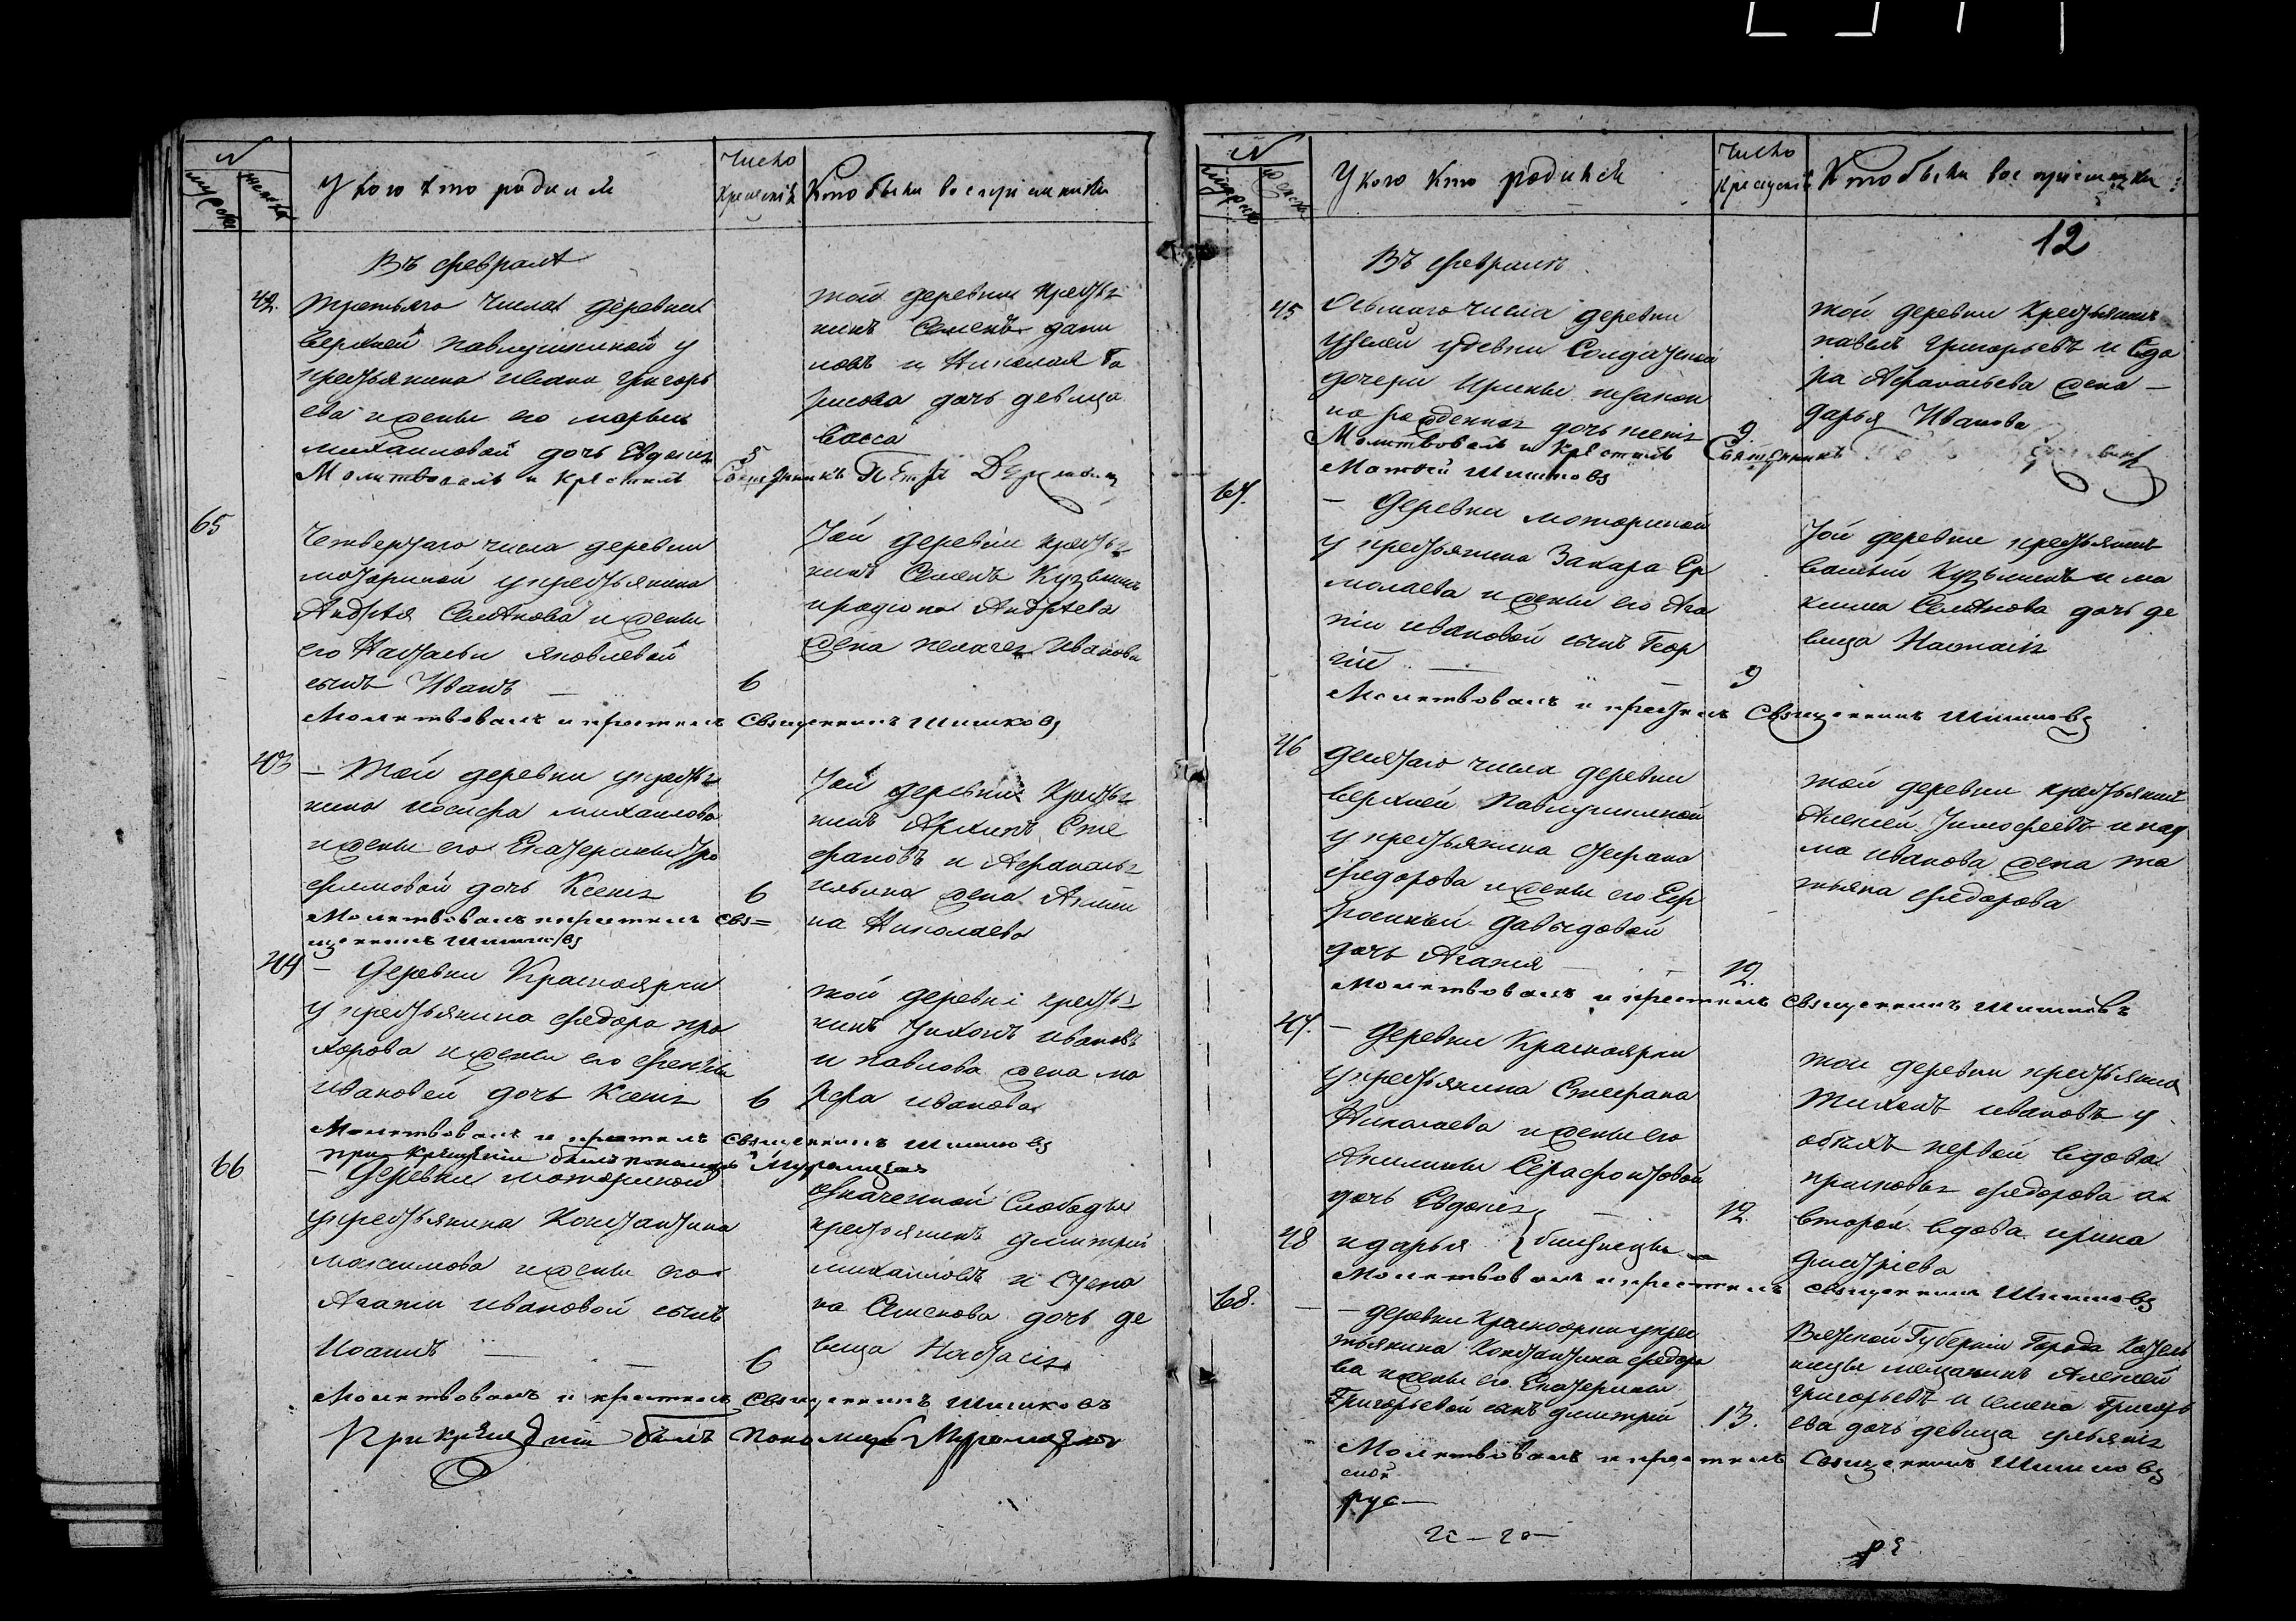 N
мужска
женска
У кого кто родился
Число
Крещенія
Кто были воспріемники
Въ Февралѣ
42. третьяго числа деревни
верхней павлушкиной у
крестьянина ивана григорь
ева и жены его марьи
михаиловой дочь Евдокія
5
Молитвовалъ и крестилъ Священникъ Петръ
той деревни крестья
нинъ Семенъ дани
ловъ и Николая Бо
рисова дочь девица
васса
65
Четвертаго числа деревни
моториной у крестьянина
Андрѣя Семѣнова и жены
его Настасьи яковлевой
сынъ Иванъ — 6
Той деревни крестья
нинъ Семенъ Кузьминъ
иродіона Андрѣева
жена пелагея Иванова
Молитвовалъ и крестилъ Священникъ Шишковъ
43 — Той деревни у кресть
нина иосифа михаилова
и жены его Екатерины Тро
фимовой дочь Ксенія 6
Молитвовалъ и крестилъ свя=
щенникъ Шишковъ
Той деревни Крестья
нинъ Архипъ Сте
фановъ и Афанасья
ильина жена Акили
на Николаева
44 — Деревни Красноярки
у крестьянина федора про
хорова и жены его
Ивановой дочь Ксенія 6
той деревни крестья
нинъ Тихонъ ивановъ
и павлова жена ма
рфа иванова
Молитвовалъ и крестилъ священникъ Шишковъ
при крещеніи былъ пономарь
66
— Деревни моториной
у крестьянина Константина
максимова и жены его
Агафіи ивановой сынъ
Иоаннъ — 6
означенной Слободы
крестьянинъ димитрій
михаиловъ и Степа
на Семенова дочь де
вица Настасія
Молитвовалъ и крестилъ священникъ Шишковъ
При крещеніи былъ пономарь
N
мужска
женска
У кого кто родился
Число
Крещенія
Кто были воспріемники
12
Въ Февралѣ
45 Осьмаго числа деревни
у девки Солдатской
дочери Ирины незакон
но рожденная дочь
9
Молитвовалъ и Крестилъ Священникъ
Матфей Шишковъ
той деревни Крестьянинъ
павелъ григорьевъ и
Афанасьева жена —
дарья Иванова
67.
— Деревни моториной
у крестьянина Захара Ер
молаева и жены его Ага
фіи ивановой сынъ Геор
гій — 9
Той деревни крестьянинъ
василій Кузьминъ и ма
ксима Семѣнова дочь де
вица Настасія
Молитвовалъ и крестилъ Священникъ Шишковъ
46 девятаго числа деревни
верхней Павлушкиной
у крестьянина Стефана
федорова и жены его Евф
росиньи давыдовой
дочь Агафія — 12.
той деревни крестьянинъ
Алексей Тимофеевъ и
ма иванова жена та
тьяна федорова
Молитвовалъ и крестилъ священникъ Шишковъ
47. — деревни Красноярки
у крестьянина Стефана
Николаева и жены его
Акилины Серафонтовой
дочь Евдокія — 12.
48 и дарья } близнецы —
тои деревни крестьянинъ
Тихонъ ивановъ у
обѣихъ первой вдова
прасковья федорова а
второй вдова ирина
дмитріева
Молитвовалъ и крестилъ священникъ Шишковъ
68.
— деревни Красноярки у крес
тьянина Константина федоро
ва и жены его Екатерины
Григорьевой сынъ димитрій 13.
Вятской Губерніи Города Котель
ничь мещанинъ Алексей
григорьевъ и семена Григорь
ева дочь девица ульянія
Молитвовалъ и крестилъ Священникъ Шишковъ